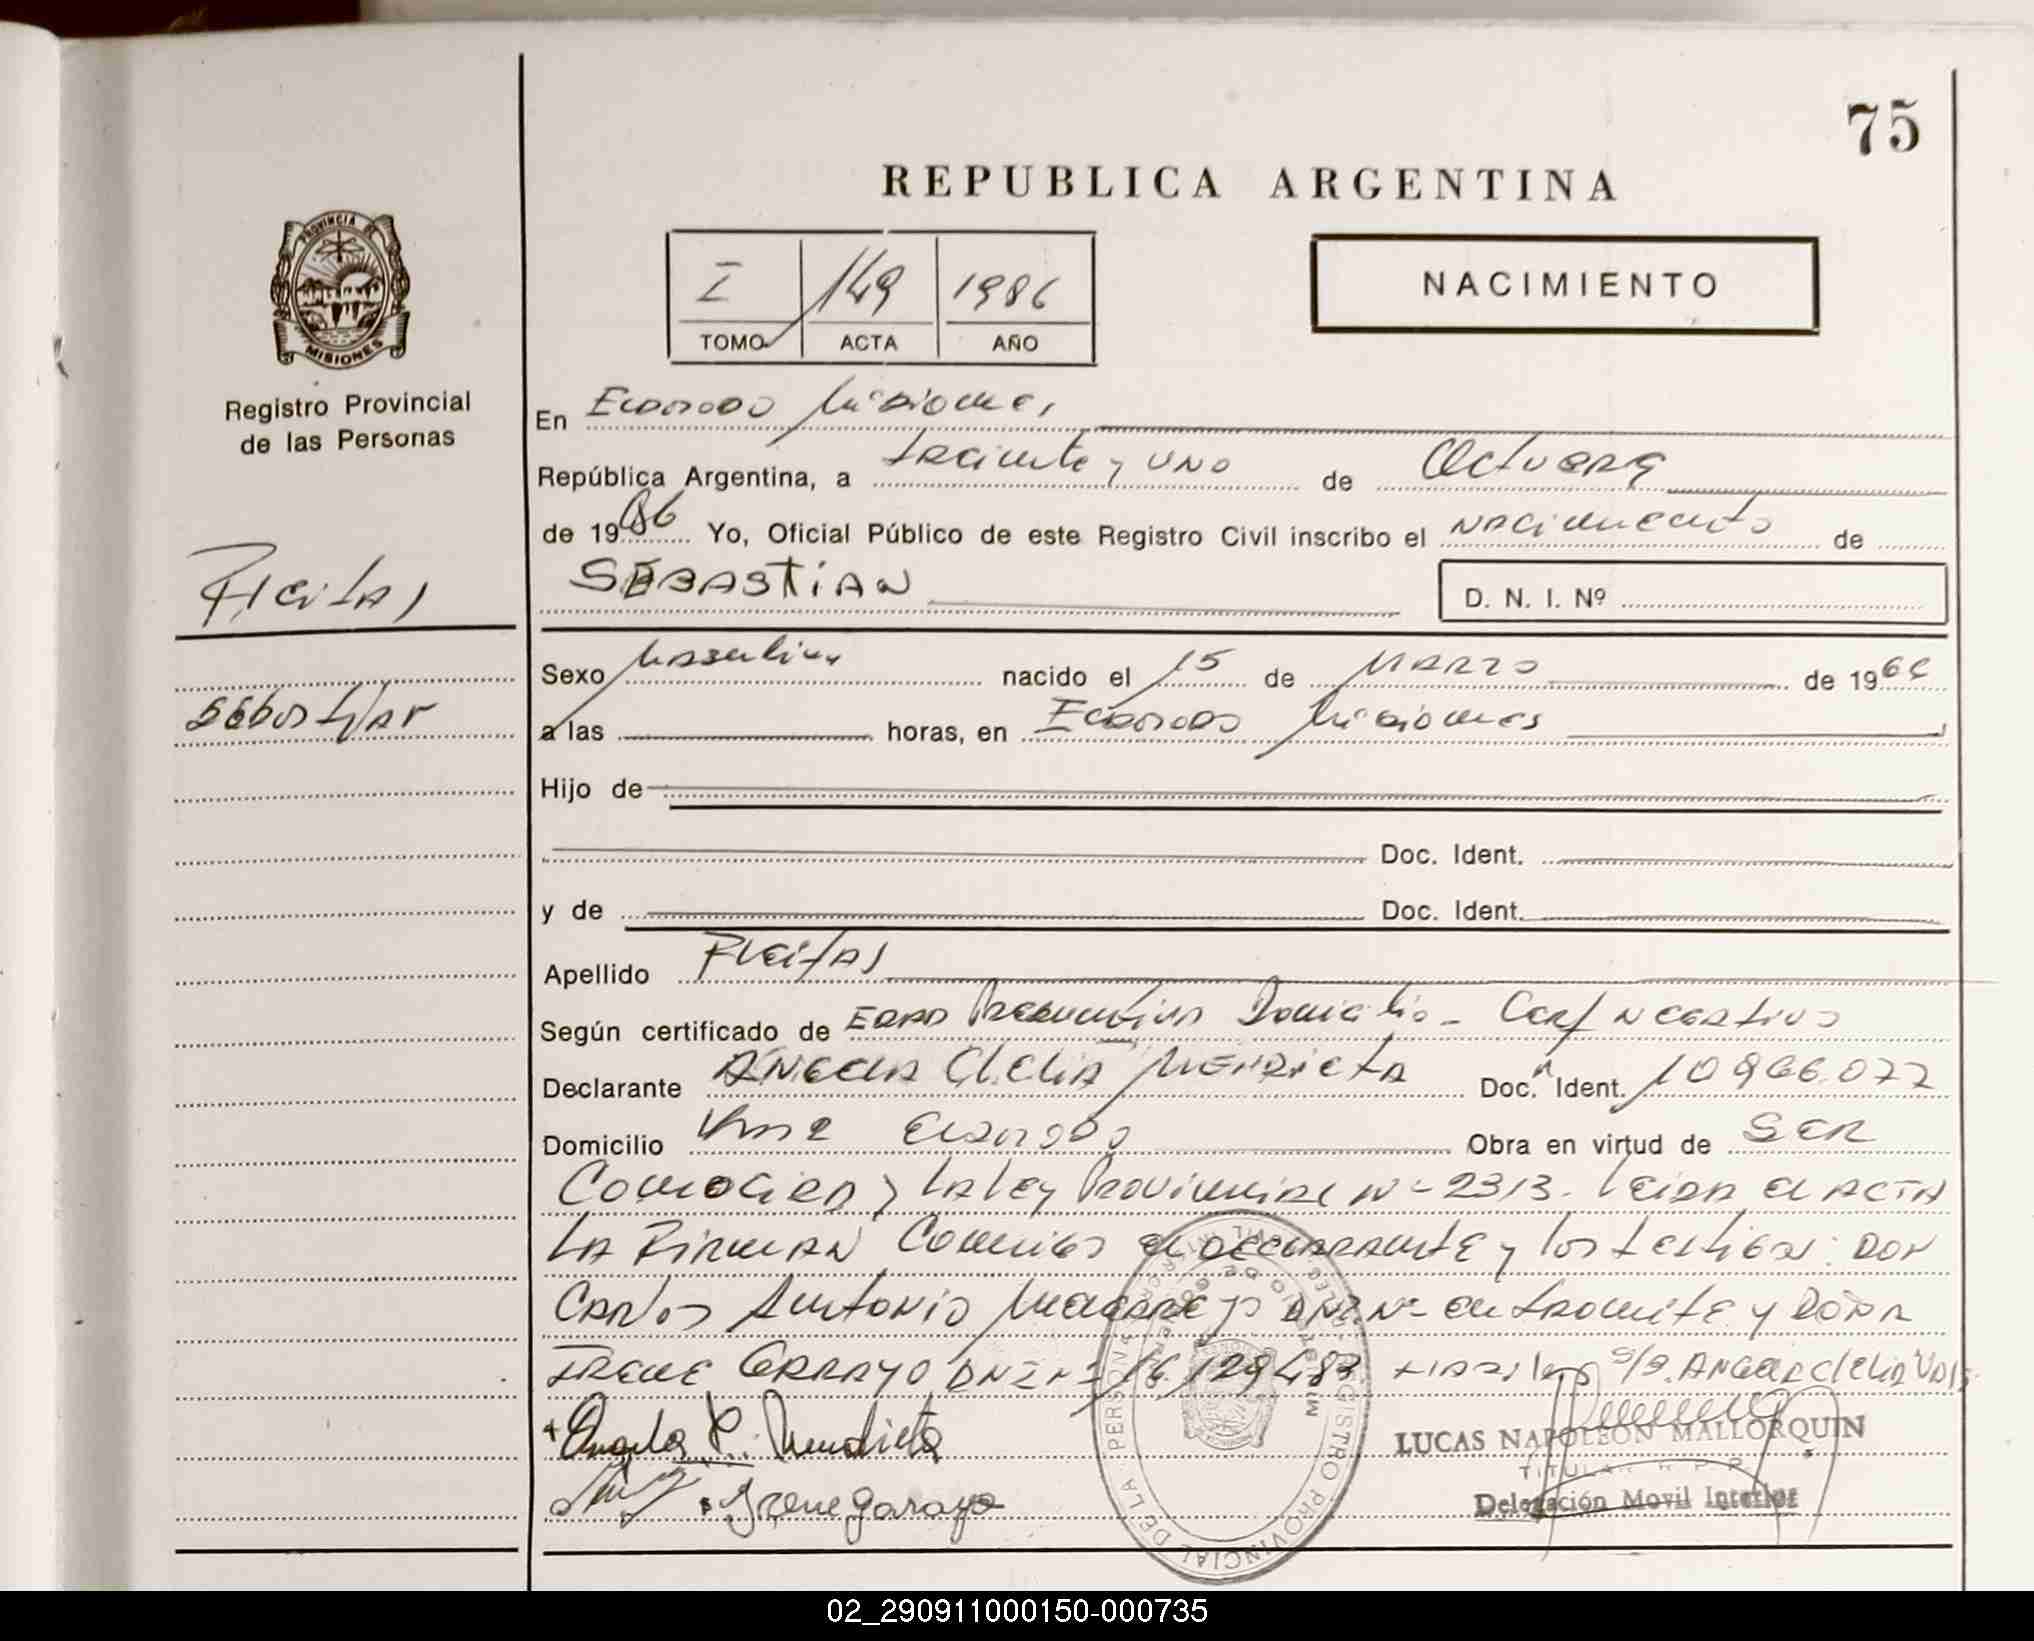 75
REPUBLICA ARGENTINA
PROVINCIA DE
MISIONES
I 149 1986
TOMO ACTA AÑO
NACIMIENTO
Registro Provincial
de las Personas
En Eldorado Misiones,
República Argentina, a treinta y uno de Octubre
de 1986 Yo, Oficial Público de este Registro Civil inscribo el nacimiento de
SEBASTIAN
D. N. I. Nº
Freitas
Sebastian
Sexo Masculino nacido el 15 de MARZO de 196
a las horas, en Eldorado Misiones
Hijo de
Doc. Ident.
y de Doc. Ident.
Apellido Freitas
Según certificado de Edad Presuntiva Domicilio - Cert Negativo
Declarante Angela Clelia Mendieta Doc. Ident. 10966.077
Domicilio Eldorado Obra en virtud de SER
Conocida y La Ley Provincial Nº 2313. Leida el ACTA
La Firman Conmigo el declarante y los testigos: DON
Carlos Antonio DNI Nº en tramite y DOÑA
IRENE GARAYO DNI Nº 16.129.483 S/B. ANGELA CLELIA VALE
Angela C. Mendieta
Irene Garayo
LUCAS NAPOLEON MALLORQUIN
TITULAR R P P
Delegación Movil Interior
REGISTRO PROVINCIAL DE LA PERSONAS
MINISTERIO DE GOBIERNO
02_290911000150-000735